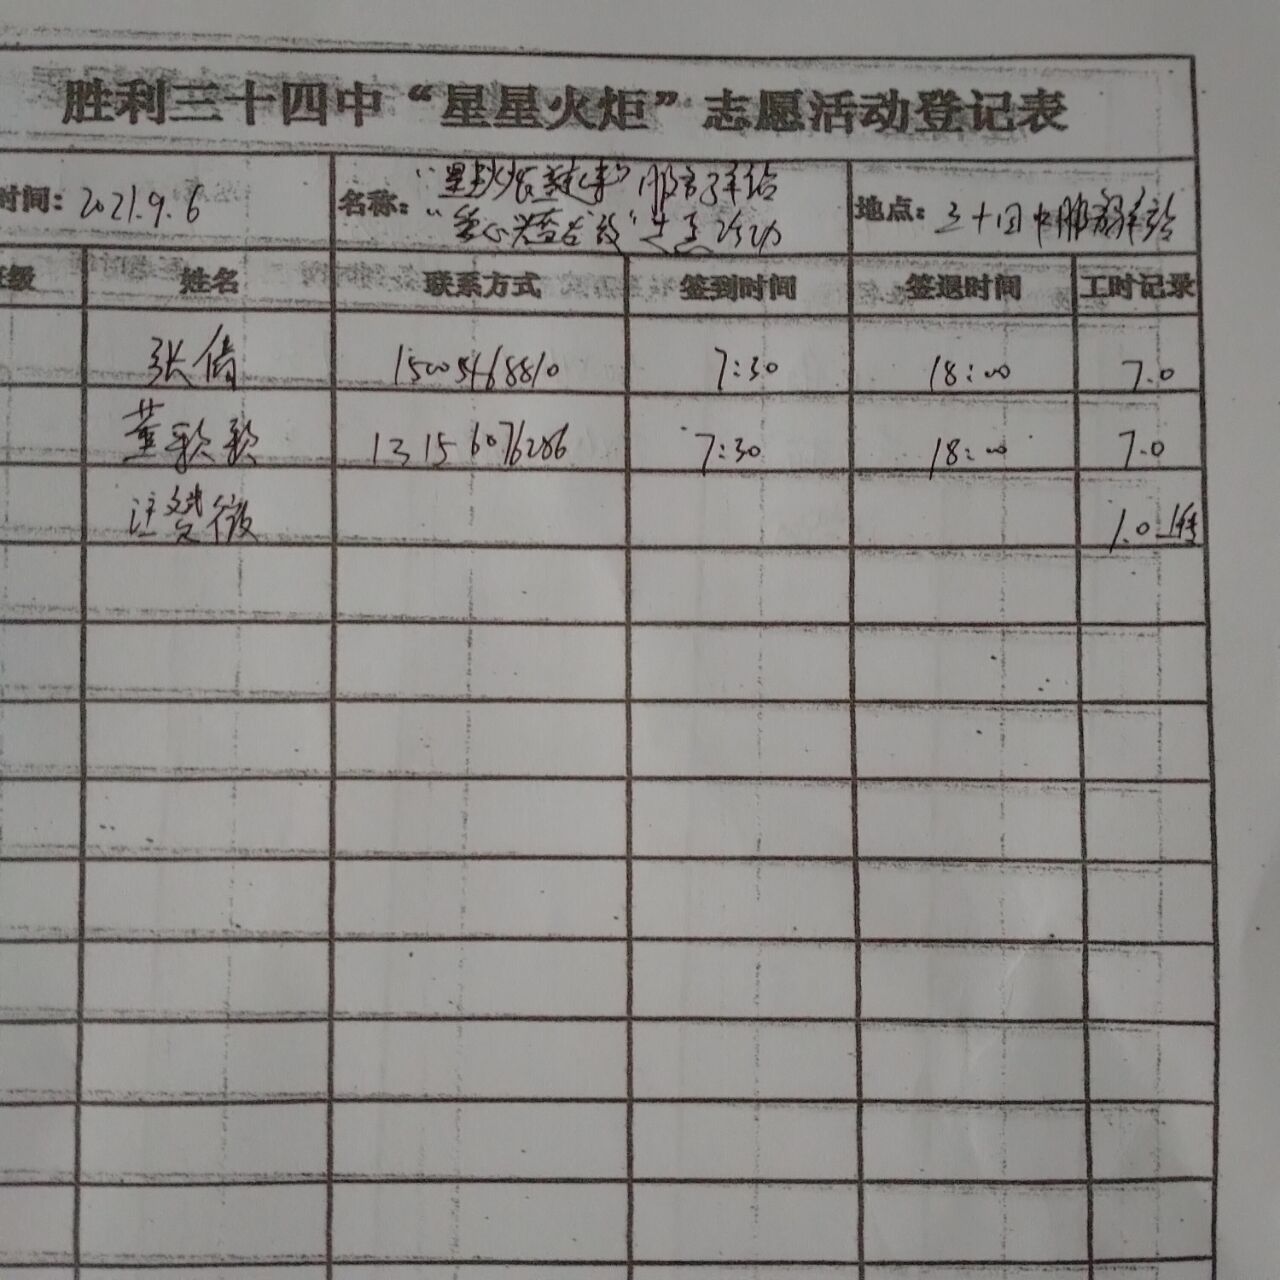 胜利三十四中“星星火炬”志愿活动登记表
时间：2021.9.6 名称： 地点：三十四中服务驿站
“星星火炬 ” 服务驿站
“爱心 ”志愿活动
级 姓名 联系方式 签到时间 签退时间 工时记录
张倩 15005468810 7:30 18:00 7.0
董歌歌 13156076286 7:30 18:00 7.0
汪赞微 1.0